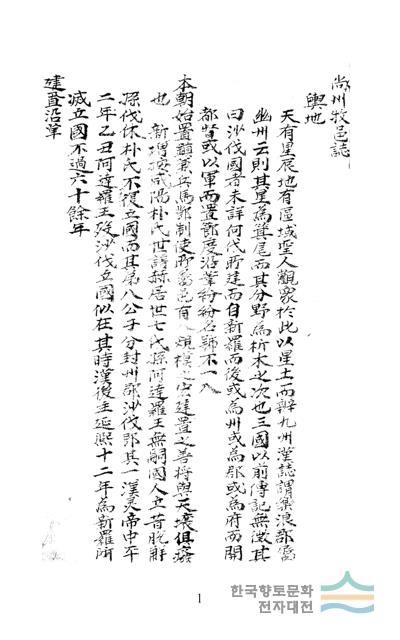 尚州牧邑誌
輿地
天有星辰地有區域聖人觀象於此以星土而辨九州漢誌謂樂浪郡屬
幽州云則其星爲箕尾而其分野爲析木之次也三國以前傳記無徵其
曰沙伐國者未詳何代所建而自新羅而後或爲州或爲郡或爲府而開
都督或以軍而置節度沿革紛紛名號不一入
本朝始置鎭兼兵馬節制使所
也 新增按咸陽朴氏世譜赫居世七代孫阿達羅王無嗣國人立昔脫解
孫伐休朴氏不復立國而其第八公子分封州鄙沙伐郡其一漢灵帝中平
二年乙丑阿達羅王歿沙伐立國似在其時漢後主延熙十二年爲新羅所
滅立國不過六十餘年
建置沿革
1
한국향토문화
전자대전